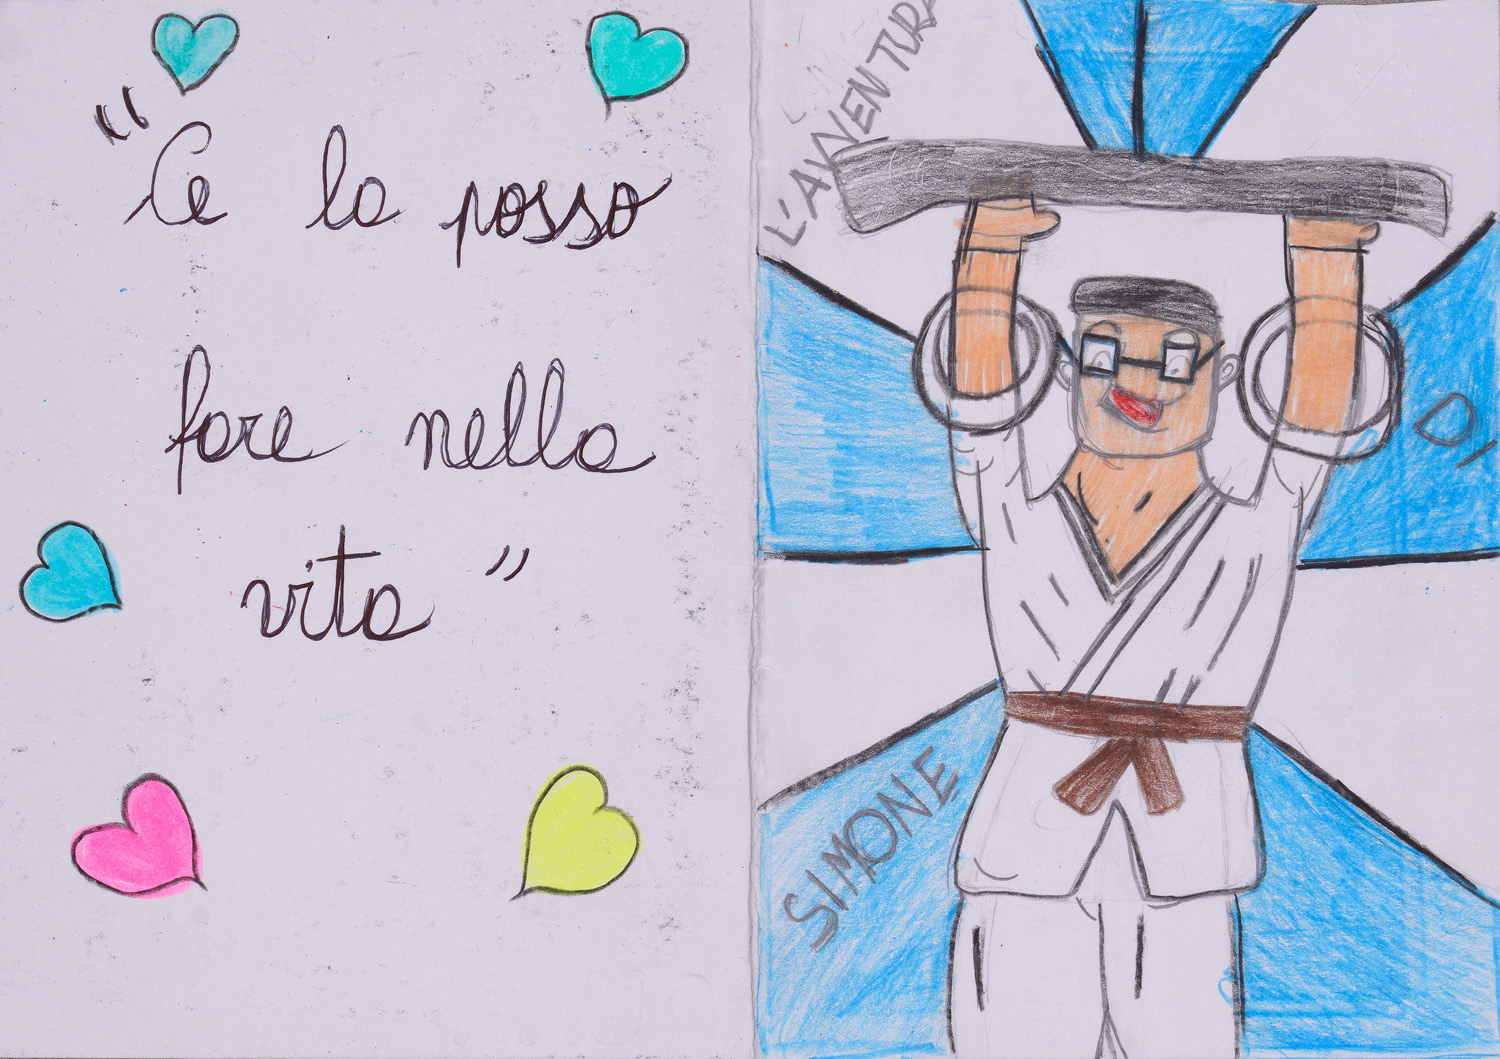 “Ce la posso
fare nella
vita”
L'AVVENTURA
DI
SIMONE